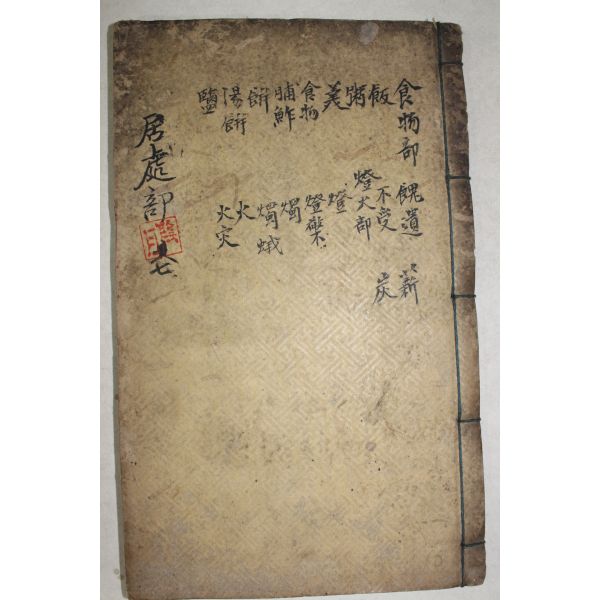 食物部
飯
粥
羹
食物
脯鮓
餠
湯餠
鹽
餽遺
不受
燈火部
燈
燈檠
燭
燭蛾
火
火灾
薪
炭
居處部